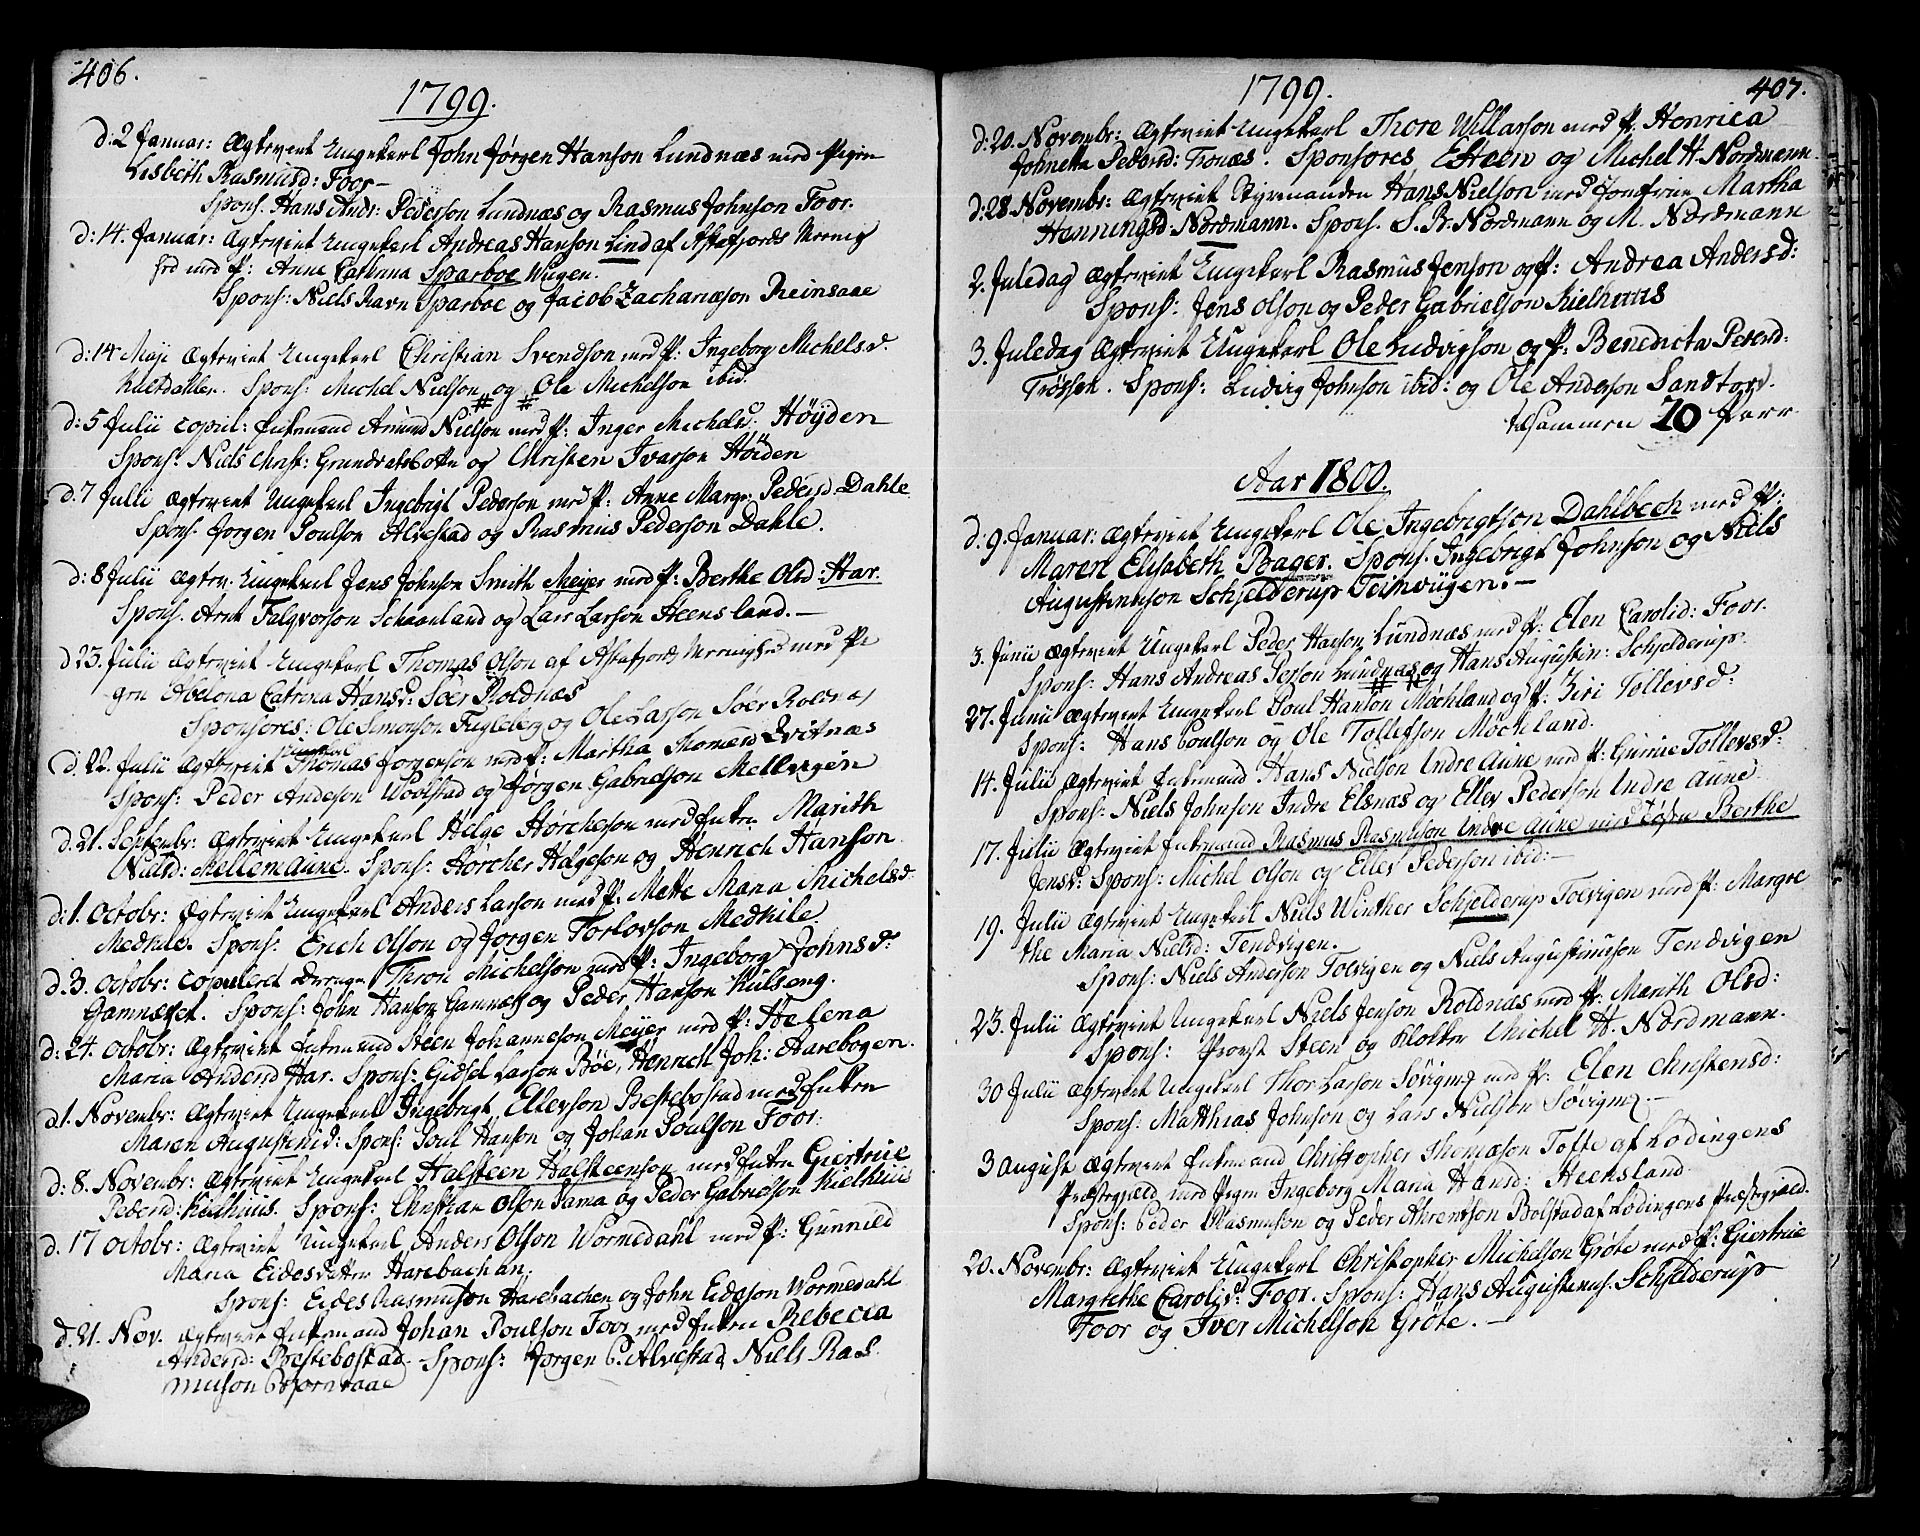 406.
1799.
d: 2 Januar: Ægteviet Ungekarl John Jørgen Hanson Lundnæs med Pigen
Lisbeth Rasmusd: Foor—
Spons. Hans Andr: Pederson Lundnæs og Rasmus Johnson Foor.
d: 14. Januar: Ægteviet Ungekarl Andreas Hanson Lind af Astafjords Menig
hed med P: Anne Catrina Sparboe Wugen.
Spons: Niels Ravn Sparboe og Jacob Zachariæson Reinsaae
d: 14 Maji Ægteviet Ungekarl Christian Svendson med P: Ingeborg Michelsd.
Kaltdahlen. Spons: Michel Nielson og Ole Michelson ibid.
d: 5 Julii copul: Enkemand Amund Nielson med P: Inger Michelsd. Høyden
Spons: Niels Christ: Grundvatsbotn og Christen Ivarson Høiden
d. 7 Julii Ægteviet Ungekarl Ingebrigt Pederson med P: Anne Margr: Pedersd Dahle
Spons. Jørgen Poulson Alvestad og Rasmus Pederson Dahle.
d: 8 Julii Ægtev. Ungekarl Jens Johnson Smith Meijer med P: Berthe Olsd: Har.
Spons. Arnt Falqvorson Schaanland og Lars Larson Steensland.—
d 23. Julii Ægteviet Ungekarl Thomas Olson af Astafjords Menighed med Pi
gen Abelona Catrina Hansd: Søer Roldnæs
Sponsores: Ole Simonson Fugleberg og Ole Larson Søer Roldnæs
d. 22. Julii Ægteviet Ungekarl Thomas Jørgenson med P: Martha Thomæsd Qvitnæs
Spons: Peder Anderson Woolstad og Jørgen Gabrielson Mellvigen
d. 21. Septembr: Ægteviet Ungekarl Helge Størcherson med Enken Marith
Nielsd: Mellem Aune. Spons: Størcher Helgeson og Henrich Hanson
d: 1. Octobr: Ægteviet Ungekarl Anders Larson med P. Mette Maria Michelsd
Medkile. Spons: Erich Olson og Jørgen Torlovson Medkile.
d. 3. Octobr: copuleret Drengen Thron Michelson med P: Ingeborg Johnsd:
Gamnæsset. Spons: John Hanson Gamnæss og Peder Hanson Kulseng.
d: 24. Octobr: Ægteviet Enkemand Steen Johanneson Meijer med P: Helena
Maria Andersd Har. Spons: Gidsel Larson Böe, Henrich Joh: Aarebogen.
d 1. Novembr: Ægteviet Ungekarl Ingebrigt Ellevson Bestebostad med Enken
Maren Augustinid: Spons: Poul Hanson og Johan Poulson Foor.
d: 8. Novembr: Ægteviet Ungekarl Halsteen Halsteenson med Enken Giertrue
Pedersd: Kielhuus. Spons: Christian Olson Sama og Peder Gabrielson Kielhuus
d. 17 Octobr: Ægteviet Ungekarl Anders Olson Wormedahl med P: Gunnild
Maria Eidesdatter Harebachen.
Spons: Eides Rasmuson Harebachen og John Eidesson Wormedahl
d. 21. Nov. Ægteviet Enkemand Johan Poulson Foor med Enken Rebecca
Andersd: Bestebostad. Spons: Jørgen P. Alvestad, Niels Ras
muson Bjørnraae
1799.
407.
d: 20. Novembr: Ægteviet Ungekarl Thore Willarson med P: Henrica
Johnetta Pedersd: Tronæs. Sponsores E Steen og Michel H. Nordmann.
d: 28. Novembr: Ægteviet Styrmanden Hans Nielson med Jomfrue Martha
Henningsd: Nordmann. Spons. S. B. Nordmann og M. Nordmann
2. Juledag Ægteviet Ungekarl Rasmus Jenson og P: Andrea Andersd:
Spons: Jens Olson og Peder Gabrielson Kielhuus
3. Juledag Ægteviet Ungekarl Ole Ludvigson og P: Benedicta Petersd:
Trøssen. Spons: Ludvig Johnson ibid: og Ole Anderson Sandtorv.
tilsammen 20 Parr
Aar 1800.
d. 9. Januar: Ægteviet Ungekarl Ole Ingebrigtson Dahlbech med P:
Maren Elisabeth Bager. Spons. Ingebrigt Johnson og Niels
Augustinuson Schjelderup Teinvügen.—
3. Junii Ægteviet Ungekarl Peder Hanson Lundnæs med P: Elen Carolid: Foor.
Spons: Hans Andreas Person Lundnæs og Hans Augustin: Schjelderup.
27. Junii Ægteviet Ungekarl Poul Hanson Møchland og P: Siri Tollevsd:
Spons: Hans Poulson og Ole Tollefson Møchland.
14. Julii Ægteviet Enkemand Hans Nielson Indre Aune med P: Gunnie Tollevsd:
Spons: Niels Johnson Indre Elsnæs og Ellev Pederson Indre Aune
17. Julii Ægteviet Enkemand Rasmus Rasmuson Indre Aune med Tøsen Berthe
Jensd: Spons: Michel Olson og Ellev Pederson ibid:—
19. Julii Ægteviet Ungekarl Niels Winther Schjelderup Tolvigen med P: Margre
the Maria Nielsd: Tendvigen.
Spons: Niels Anderson Tolvigen og Niels Augustinuson Tendvigen
23. Julii Ægteviet Ungekarl Niels Jenson Roldnæs med P: Marith Olsd:
Spons: Provst Steen og Klokker Michel H. Nordmann.
30 Julii Ægteviet Ungekarl Thor Larson Søvigen med P: Elen Christensd:
Spons: Matthias Johnson og Lars Nielson Søvigen.—
3 August Ægteviet Enkemand Christopher Thomæson Tofte af Lødingens
Præstegjæld med Pigen Ingeborg Maria Hansd: Steensland
Spons: Peder Rasmuson og Peder Ahrentson Bolstad af Lødingens Præstegjæld.
20. Novembr: Ægteviet Ungekarl Christopher Michelson Grøte med P: Giertrue
Margrethe Carolid: Foor. Spons: Hans Augustinus. Schjelderup
Foor og Iver Michelson Grøte.—